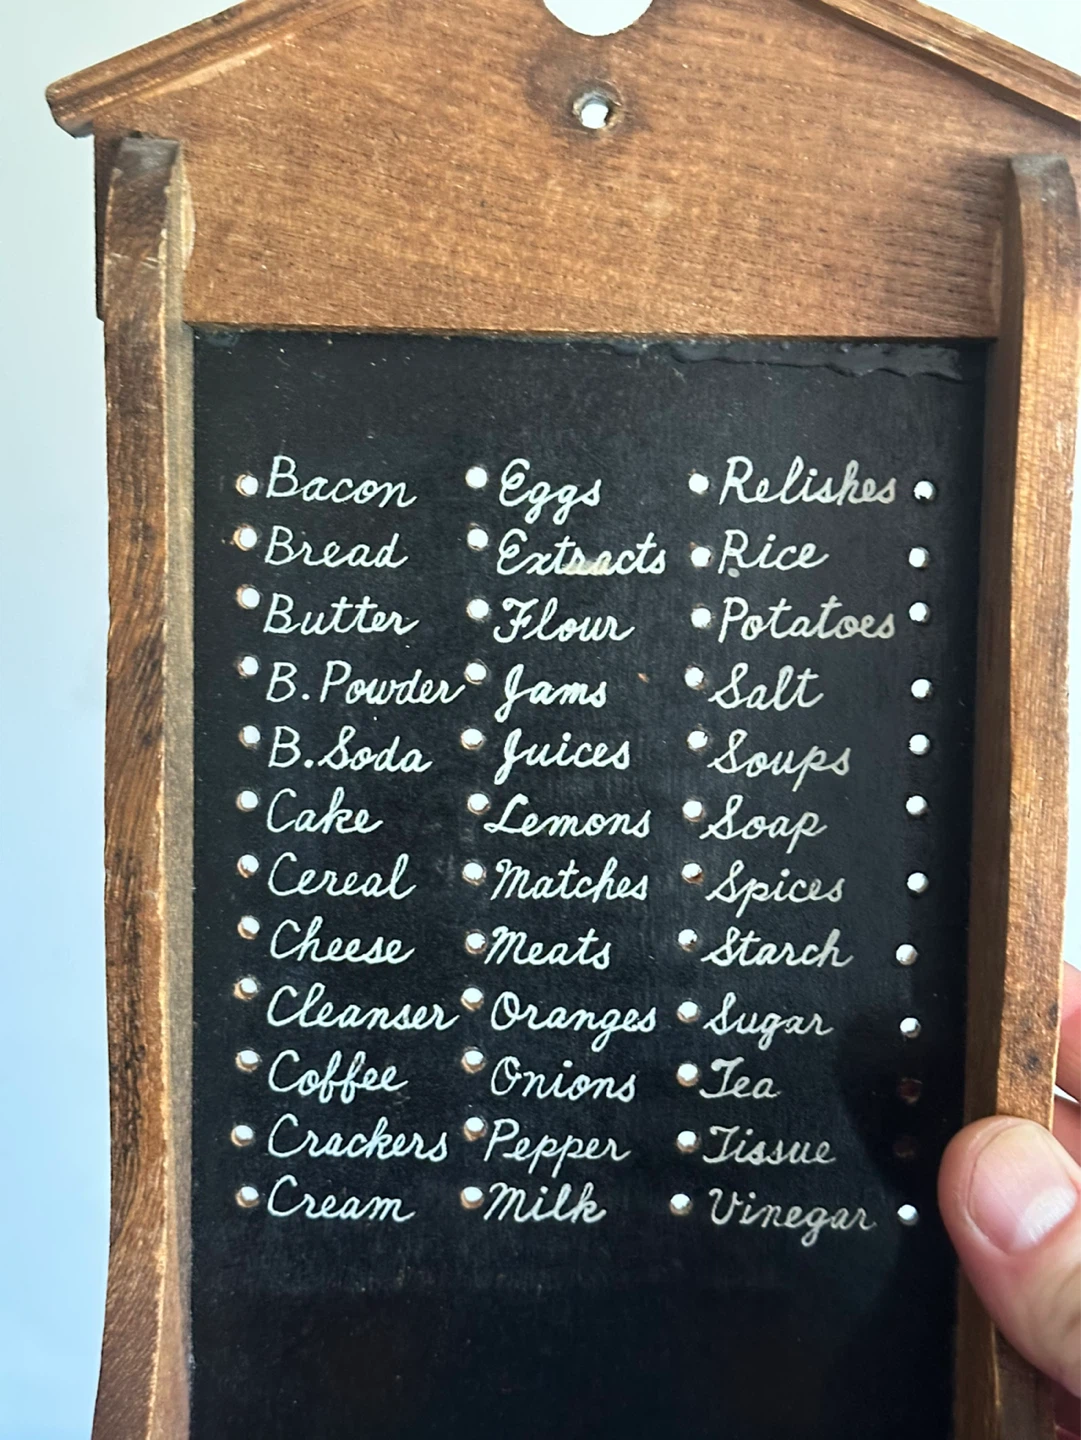 Bacon Eggs Relishes
Bread Extracts Rice
Butter Flour Potatoes
B. Powder Jams Salt
B. Soda Juices Soups
Cake Lemons Soap
Cereal Matches Spices
Cheese Meats Starch
Cleanser Oranges Sugar
Coffee Onions Tea
Crackers Pepper Tissue
Cream Milk Vinegar